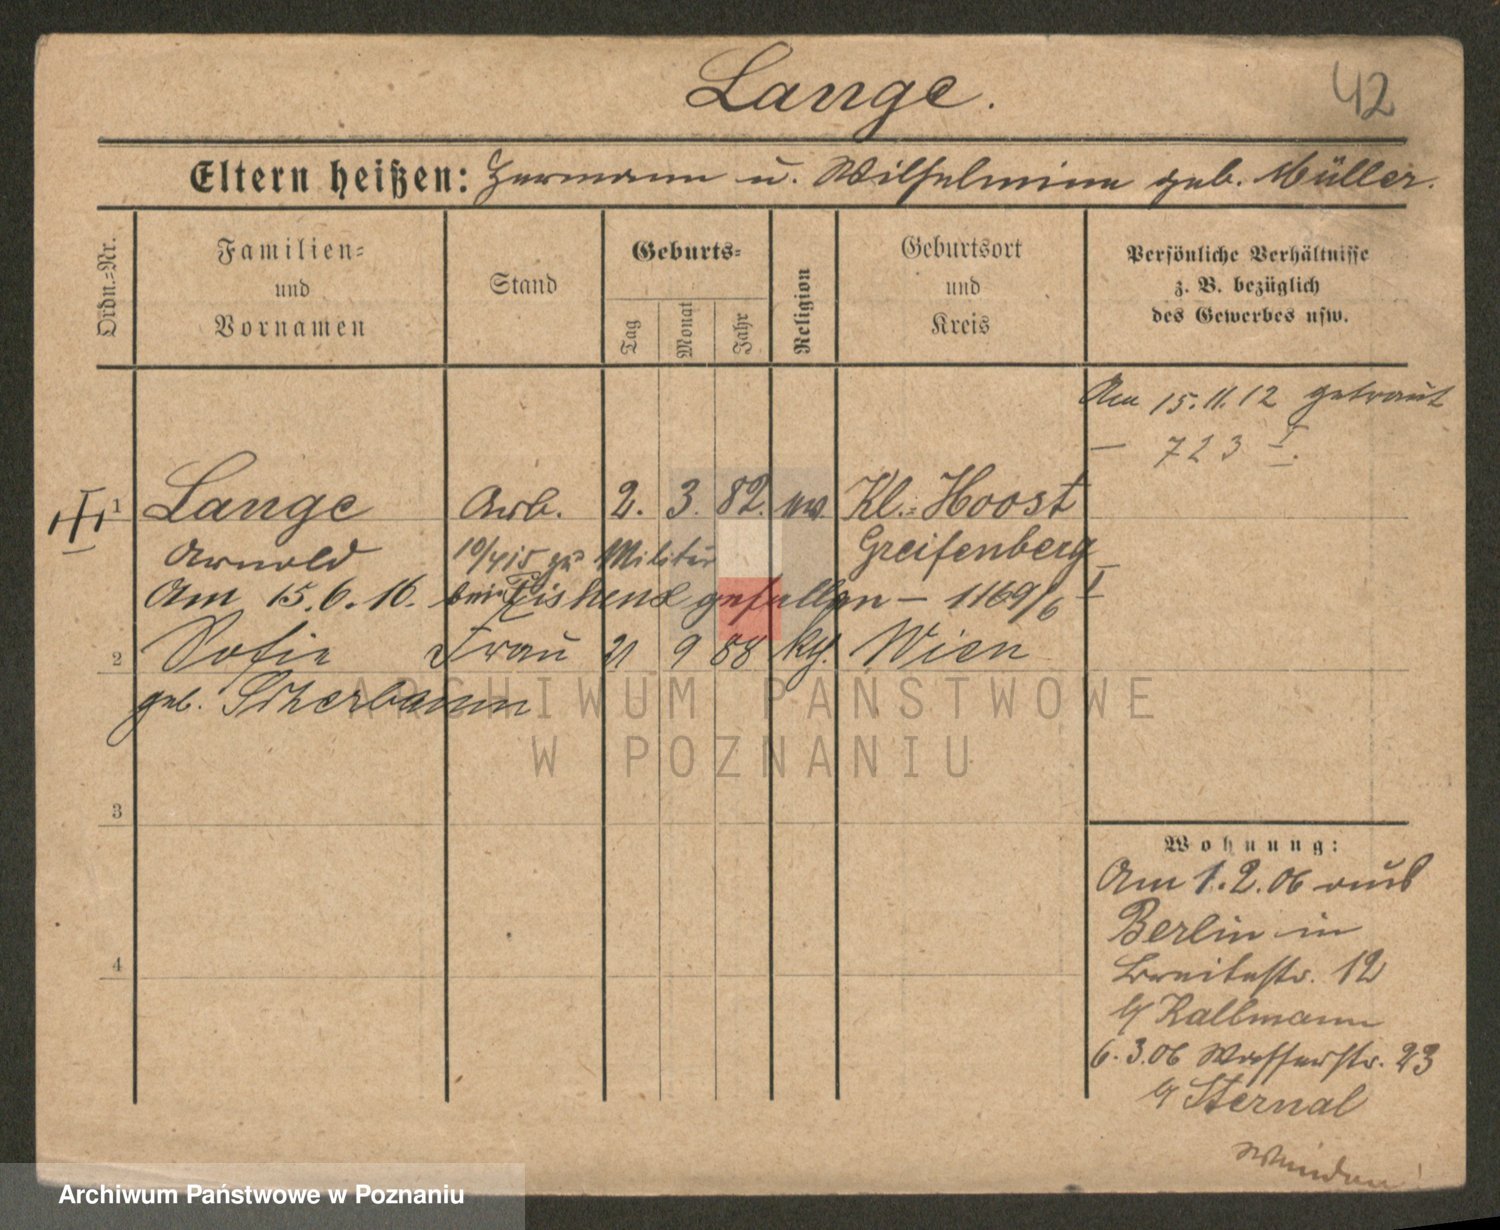 Lange.
42
Eltern heißen: Hermann u. Wilhelmine geb. Müller.
Ordn.-Nr.
Familien-
und
Vornamen
Stand
Geburts-
Tag
Monat
Jahr
Religion
Geburtsort
und
Kreis
Persönliche Verhältnisse
z. B. bezüglich
des Gewerbes usw.
Am 15.11.12 getraut
— 723 I.
1 Lange Arb. 2. 3. 82. ev. Kl.-Hoost
Arnold 10/4 15 zu Militär Greifenberg
Am 15.6.16. bei gefallen — 1169/6 I
2 Sofie Frau 21 9 88 kth. Wien
geb. Scherbaum
3
4
Wohnung:
Am 1.2.06 aus
Berlin in
Breitestr. 12
b/ Kallmann
6.3.06 Wasserstr. 23
b/ Sternal
ARCHIWUM PAŃSTWOWE
W POZNANIU
Archiwum Państwowe w Poznaniu